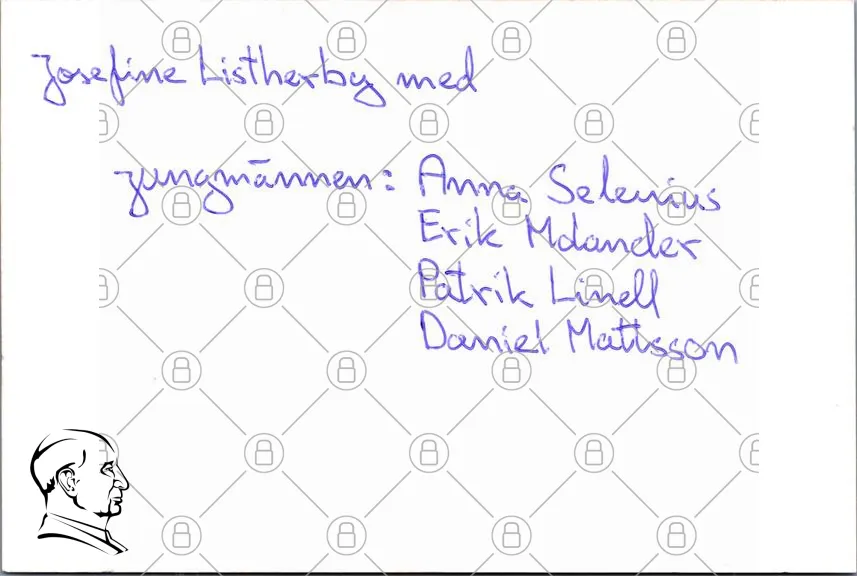 Josefine Listherby med
jungmännen: Anna Selenius
Erik Molander
Patrik Linell
Daniel Mattsson